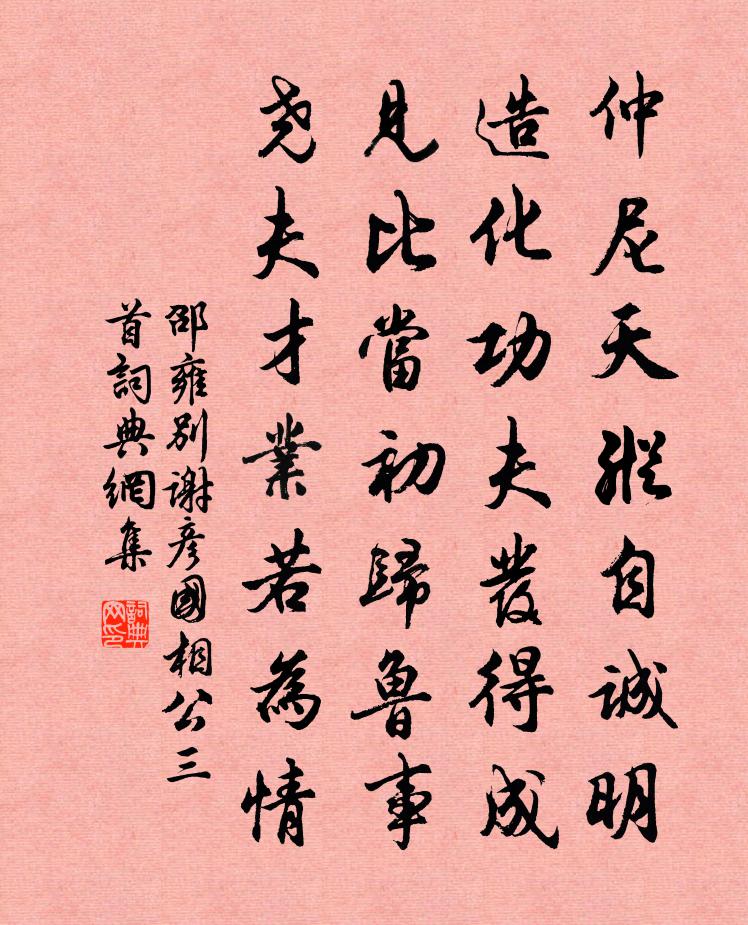 仲尼天縱自誠明
造化功夫發得成
見比當初歸魯事
堯夫才業若為情
邵雍別謝彥國相公三
首詞典網集
詞典
网印